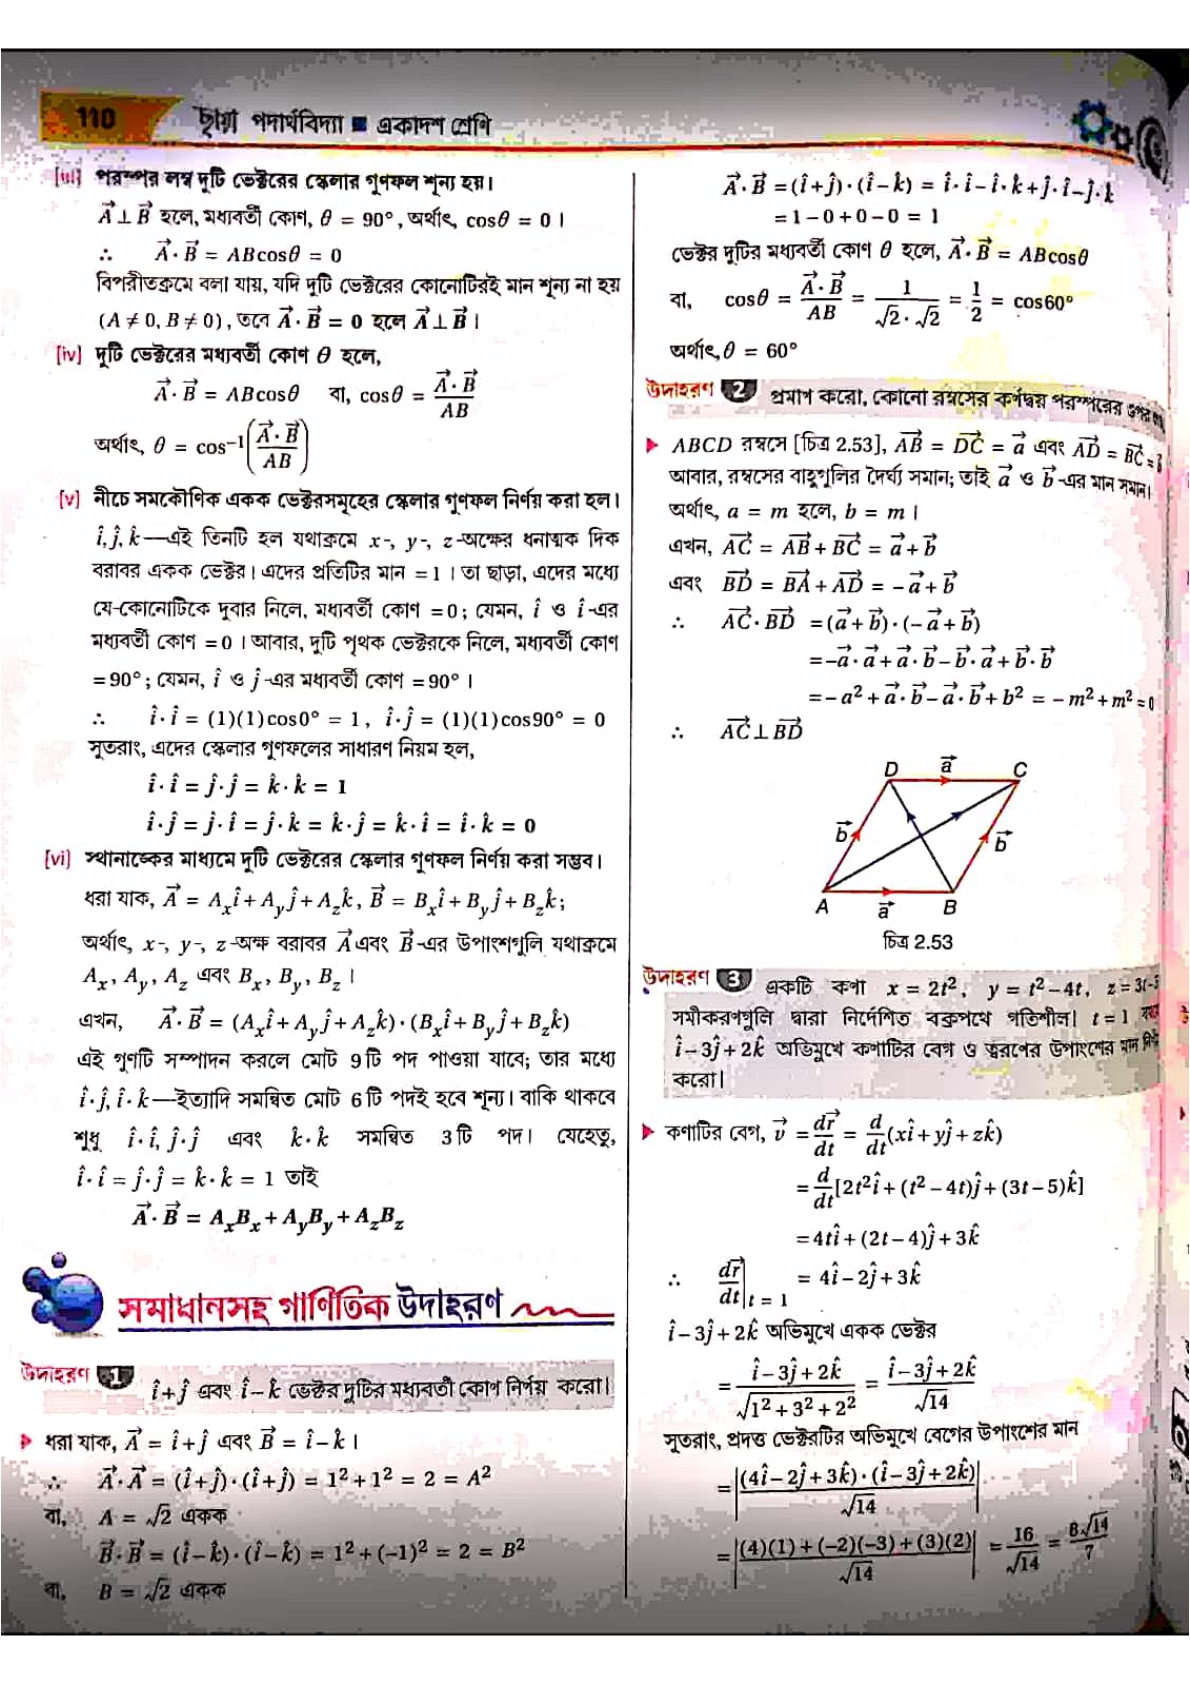 110 ছায়া পদার্থবিদ্যা ■ একাদশ শ্রেণি
[iii] পরস্পর লম্ব দুটি ভেক্টরের স্কেলার গুণফল শূন্য হয়।
A⃗ ⊥ B⃗ হলে, মধ্যবর্তী কোণ, θ = 90°, অর্থাৎ, cosθ = 0 ।
∴ A⃗ · B⃗ = ABcosθ = 0
বিপরীতক্রমে বলা যায়, যদি দুটি ভেক্টরের কোনোটিরই মান শূন্য না হয়
(A ≠ 0, B ≠ 0), তবে A⃗ · B⃗ = 0 হলে A⃗ ⊥ B⃗ ।
[iv] দুটি ভেক্টরের মধ্যবর্তী কোণ θ হলে,
A⃗ · B⃗ = ABcosθ বা, cosθ = (A⃗ · B⃗)/AB
অর্থাৎ, θ = cos⁻¹((A⃗ · B⃗)/AB)
[v] নীচে সমকৌণিক একক ভেক্টরসমূহের স্কেলার গুণফল নির্ণয় করা হল।
î, ĵ, k̂—এই তিনটি হল যথাক্রমে x-, y-, z-অক্ষের ধনাত্মক দিক
বরাবর একক ভেক্টর। এদের প্রতিটির মান = 1 । তা ছাড়া, এদের মধ্যে
যে-কোনোটিকে দুবার নিলে, মধ্যবর্তী কোণ = 0 ; যেমন, î ও î-এর
মধ্যবর্তী কোণ = 0 । আবার, দুটি পৃথক ভেক্টরকে নিলে, মধ্যবর্তী কোণ
= 90° ; যেমন, î ও ĵ-এর মধ্যবর্তী কোণ = 90° ।
∴ î · î = (1)(1)cos0° = 1 , î · ĵ = (1)(1)cos90° = 0
সুতরাং, এদের স্কেলার গুণফলের সাধারণ নিয়ম হল,
î · î = ĵ · ĵ = k̂ · k̂ = 1
î · ĵ = ĵ · î = ĵ · k̂ = k̂ · ĵ = k̂ · î = î · k̂ = 0
[vi] স্থানাঙ্কের মাধ্যমে দুটি ভেক্টরের স্কেলার গুণফল নির্ণয় করা সম্ভব।
ধরা যাক, A⃗ = Aₓî + A_yĵ + A_zk̂ , B⃗ = Bₓî + B_yĵ + B_zk̂ ;
অর্থাৎ, x-, y-, z-অক্ষ বরাবর A⃗ এবং B⃗-এর উপাংশগুলি যথাক্রমে
Aₓ, A_y, A_z এবং Bₓ, B_y, B_z ।
এখন, A⃗ · B⃗ = (Aₓî + A_yĵ + A_zk̂) · (Bₓî + B_yĵ + B_zk̂)
এই গুণটি সম্পাদন করলে মোট 9টি পদ পাওয়া যাবে; তার মধ্যে
î · ĵ, î · k̂—ইত্যাদি সমন্বিত মোট 6টি পদই হবে শূন্য। বাকি থাকবে
শুধু î · î, ĵ · ĵ এবং k̂ · k̂ সমন্বিত 3টি পদ। যেহেতু,
î · î = ĵ · ĵ = k̂ · k̂ = 1 তাই
A⃗ · B⃗ = AₓBₓ + A_yB_y + A_zB_z
সমাধানসহ গাণিতিক উদাহরণ
উদাহরণ 1 î + ĵ এবং î − k̂ ভেক্টর দুটির মধ্যবর্তী কোণ নির্ণয় করো।
ধরা যাক, A⃗ = î + ĵ এবং B⃗ = î − k̂ ।
∴ A⃗ · A⃗ = (î + ĵ) · (î + ĵ) = 1² + 1² = 2 = A²
বা, A = √2 একক
B⃗ · B⃗ = (î − k̂) · (î − k̂) = 1² + (−1)² = 2 = B²
বা, B = √2 একক
A⃗ · B⃗ = (î + ĵ) · (î − k̂) = î · î − î · k̂ + ĵ · î − ĵ · k̂
= 1 − 0 + 0 − 0 = 1
ভেক্টর দুটির মধ্যবর্তী কোণ θ হলে, A⃗ · B⃗ = ABcosθ
বা, cosθ = (A⃗ · B⃗)/AB = 1/(√2 · √2) = 1/2 = cos60°
অর্থাৎ, θ = 60°
উদাহরণ 2 প্রমাণ করো, কোনো রম্বসের কর্ণদ্বয় পরস্পরের ওপর
ABCD রম্বসে [চিত্র 2.53], AB⃗ = DC⃗ = a⃗ এবং AD⃗ = BC⃗ =
আবার, রম্বসের বাহুগুলির দৈর্ঘ্য সমান; তাই a⃗ ও b⃗-এর মান সমান।
অর্থাৎ, a = m হলে, b = m ।
এখন, AC⃗ = AB⃗ + BC⃗ = a⃗ + b⃗
এবং BD⃗ = BA⃗ + AD⃗ = −a⃗ + b⃗
∴ AC⃗ · BD⃗ = (a⃗ + b⃗) · (−a⃗ + b⃗)
= −a⃗ · a⃗ + a⃗ · b⃗ − b⃗ · a⃗ + b⃗ · b⃗
= −a² + a⃗ · b⃗ − a⃗ · b⃗ + b² = −m² + m² = 0
∴ AC⃗ ⊥ BD⃗
D a⃗ C
b⃗ b⃗
A a⃗ B
চিত্র 2.53
উদাহরণ 3 একটি কণা x = 2t², y = t² − 4t, z = 3t−5
সমীকরণগুলি দ্বারা নির্দেশিত বক্রপথে গতিশীল। t = 1
î − 3ĵ + 2k̂ অভিমুখে কণাটির বেগ ও ত্বরণের উপাংশের মান
করো।
কণাটির বেগ, v⃗ = dr⃗/dt = d/dt(xî + yĵ + zk̂)
= d/dt[2t²î + (t² − 4t)ĵ + (3t − 5)k̂]
= 4tî + (2t − 4)ĵ + 3k̂
∴ dr⃗/dt|t = 1 = 4î − 2ĵ + 3k̂
î − 3ĵ + 2k̂ অভিমুখে একক ভেক্টর
= (î − 3ĵ + 2k̂)/√(1² + 3² + 2²) = (î − 3ĵ + 2k̂)/√14
সুতরাং, প্রদত্ত ভেক্টরটির অভিমুখে বেগের উপাংশের মান
= |(4î − 2ĵ + 3k̂) · (î − 3ĵ + 2k̂)/√14|
= |(4)(1) + (−2)(−3) + (3)(2)/√14| = 16/√14 = 8√14/7